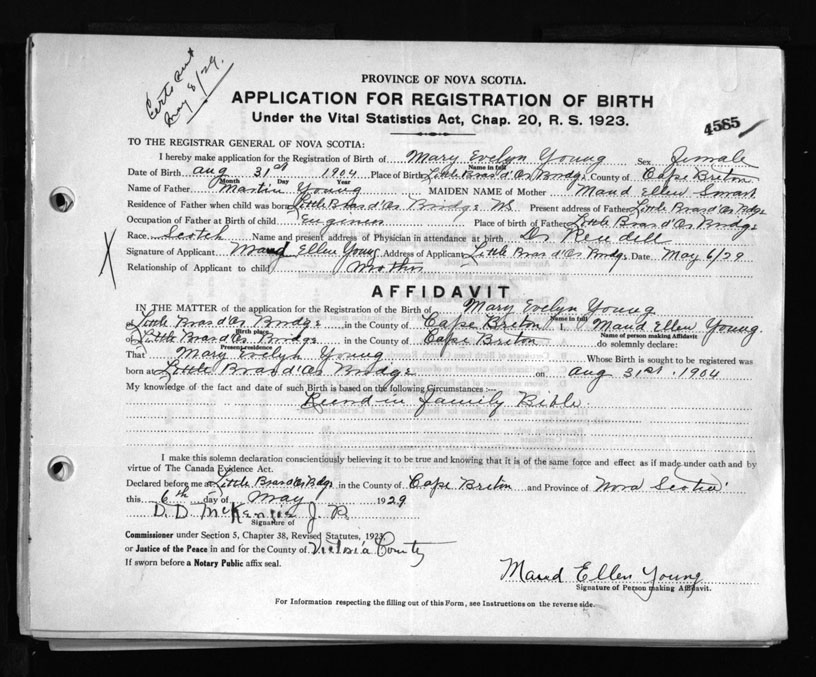 Certs out
May 8/29.
PROVINCE OF NOVA SCOTIA.
APPLICATION FOR REGISTRATION OF BIRTH
Under the Vital Statistics Act, Chap. 20, R. S. 1923.
4585
TO THE REGISTRAR GENERAL OF NOVA SCOTIA:
I hereby make application for the Registration of Birth of Mary Evelyn Young Sex Female
Name in full
Date of Birth Aug 31st 1904 Place of Birth Little Bras d'Or Bridge County of Cape Breton
Month Day Year
Name of Father Martin Young MAIDEN NAME of Mother Maud Ellen
Residence of Father when child was born Little Bras d'Or Bridge NS Present address of Father Little Bras d'Or Bdge
Occupation of Father at Birth of child Engineer Place of birth of Father Little Bras d'Or Bridge
Race Scotch Name and present address of Physician in attendance at birth Dr Rendell
Signature of Applicant Maud Ellen Young Address of Applicant Little Bras d'Or Bridg Date May 6/29
Relationship of Applicant to child Mother
X
AFFIDAVIT
IN THE MATTER of the application for the Registration of the Birth of Mary Evelyn Young
Name in full
of Little Bras d'Or Bridge in the County of Cape Breton I, Maud Ellen Young.
Birth place Name of person making Affidavit
of Little Bras d'Or Bridge in the County of Cape Breton do solemnly declare:
Present residence
That Mary Evelyn Young Whose Birth is sought to be registered was
born at Little Bras d'Or Bridge on Aug 31st. 1904
My knowledge of the fact and date of such Birth is based on the following Circumstances :—
Record in Family Bible.
I make this solemn declaration conscientiously believing it to be true and knowing that it is of the same force and effect as if made under oath and by
virtue of The Canada Evidence Act.
Declared before me at Little Bras d'Or Bdge in the County of Cape Breton and Province of Nova Scotia
this 6th day of May 1929
D. D. McKenzie J. P.
Signature of
Commissioner under Section 5, Chapter 38, Revised Statutes, 1923,
or Justice of the Peace in and for the County of Victoria County
If sworn before a Notary Public affix seal.
Maud Ellen Young
Signature of Person making Affidavit.
For Information respecting the filling out of this Form, see Instructions on the reverse side.